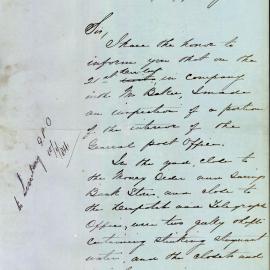 Sir,
I have the honor to
inform you that on the
2nd in company
with Mr Baker, I made
an inspection of a portion
of the interior of the
General Post Office.
In the yard, close to
the Money Order and Savings
Bank Stores and close to
the Despatch and Telegraph
Office, were two gully shafts
containing stinking stagnant
water and the closets and
G.P.O